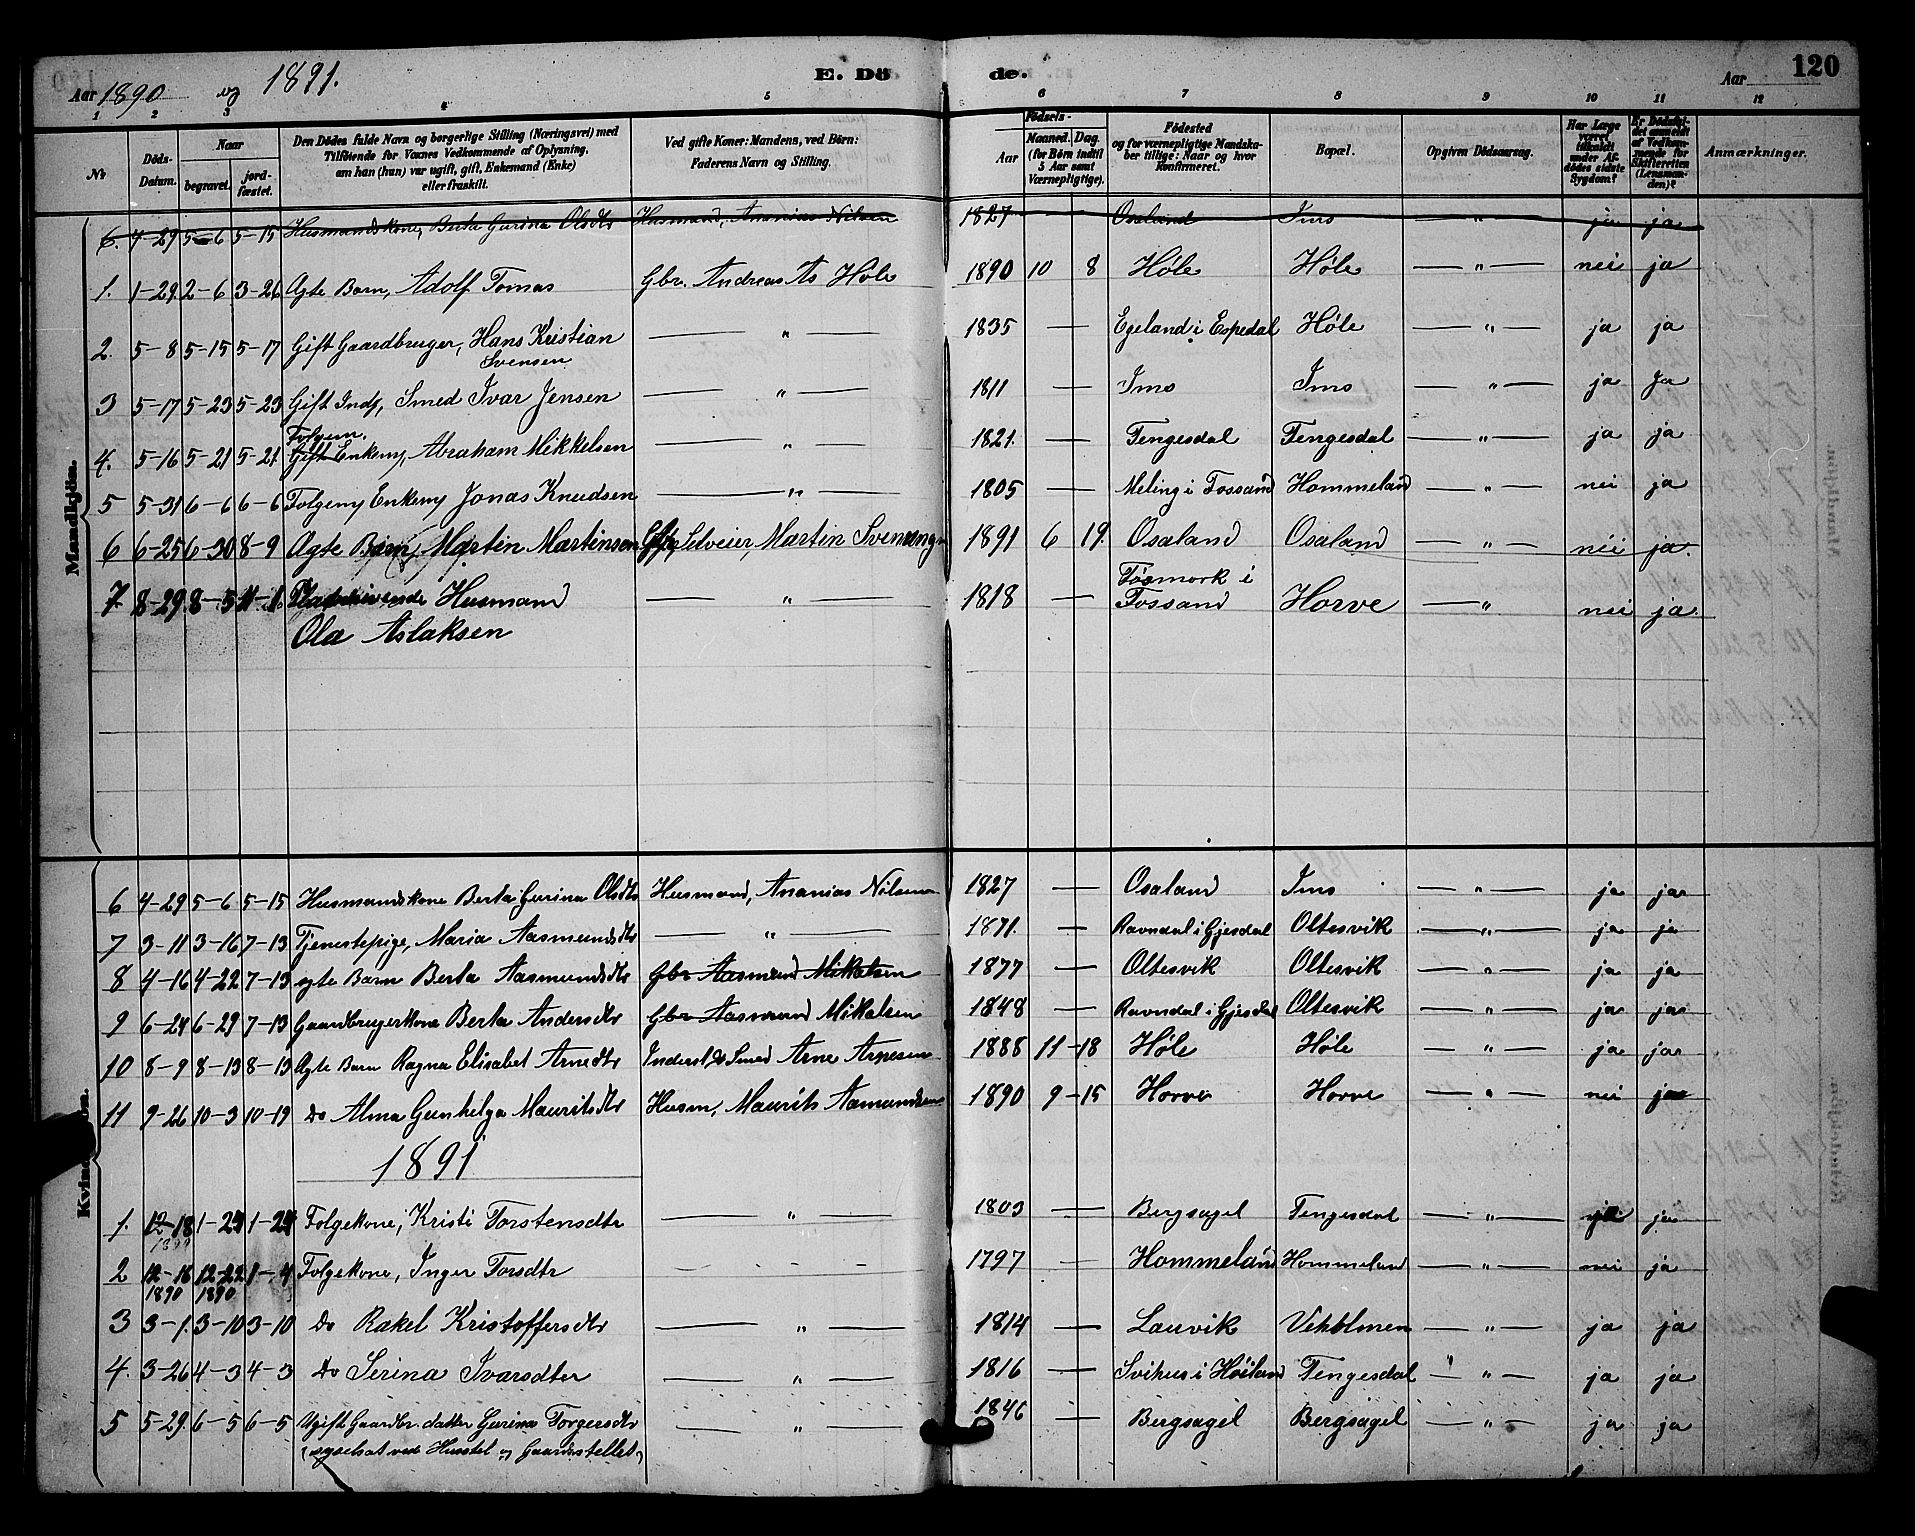 Aar 1890 og 1891. E. Dö de. Aar 120
1 2 3 4 5 6 7 8 9 10 11 12
No Döds-Datum. Naar begravet. jord-fæstet. Den Dödes fulde Navn og borgerlige Stilling (Næringsvei) med Tilföiende for Voxnes Vedkommende af Oplysning, om han (hun) var ugift, gift, Enkemand (Enke) eller fraskilt. Ved gifte Koner: Mandens, ved Börn: Faderens Navn og Stilling. Födsels- Aar Maaned. Dag. (for Börn indtil 5 Aar samt Værnepligtige). Födested og for værnepligtige Mandskaber tillige: Naar og hvor konfirmeret. Bopæl. Opgiven Dödsaarsag. Har Læge været tilkaldt under Afdödes sidste Sygdom? Er Dödsfaldet anmeldt af Vedkommende for Skifteretten (Lensmanden)? Anmærkninger.
Mandkjön.
6. 4-29 5-6 5-15 Husmandskone, Berta Gurina Olsdtr Husmand, Ananias Nilsen 1827 — Osaland Ims — " — ja ja
1. 1-29. 2-6 3-26 Ægte Barn, Adolf Tomas Gbr. Andreas As Høle 1890 10 8 Høle Høle — " — nei ja
2. 5-8 5-15 5-17 Gift Gaardbruger, Hans Kristian — " — 1835 — Egeland i Espedal Høle — " — ja ja
Svensen
3 5-17 5-23 5-23 Gift Inds, Smed Ivar Jensen — " — 1811 — Ims Ims — " — ja Ja
Folgem.
4. 5-16 5-21 5-21 Gift Enkem, Abraham Mikkelsen — " — 1821. — Tengesdal Tengesdal — " — ja ja
5 5-31 6-6 6-6 Folgem, Enkem, Jonas Knudsen — " — 1805 — Meling i Fossand Hommeland — " — nei ja
6 6-25 6-30 8-9 Ægte Barn, Martin Martinsen Selveier, Martin 1891 6 19. Osaland Osaland — " — nei ja.
Fösmork i
7. 8-29. 8-5 11-1. Husmand — " — 1818 — Fossand Horve — " nei ja.
Ola Aslaksen
Kvindekjön.
6 4-29 5-6 5-15 Husmandskone Berta Gurina Olsdtr Husmand, Ananias Nilsen 1827 — Osaland Ims — " — ja ja
7 3-11 3-16 7-13 Tjenestepige, Maria Aasmundsdtr — " — 1871. — Ravndal i Gjesdal Oltesvik — " — ja ja
8 4-16 4-22 7-13 ægte Barn Berta Aasmundsdtr Gbr Aasmund Mikalsen 1877 — Oltesvik Oltesvik — " — ja ja
9 6-24 6-29 7-13 Gaardbrugerkone Berta Andersdtr Gbr Aasmund Mikalsen 1848 — Ravndal i Gjesdal Oltesvik — " — ja ja
10 8-9 8-13 8-13 Ægte Barn Ragna Elisabet Arnedtr Inderst & Smed Arne Arnesen 1888 11-18 Høle Høle — " — ja ja
11 9-26 10-3 10-19 Do Alma Gunhelga Mauritsdtr Husm, Maurits Aamundsen 1890 9-15 Horve Horve — " — nei ja
1891
1. 12-18 1-24 1-24 Folgekone, Kristi Torstensdtr — " — 1803 — Bergsagel Tengesdal — " — ja
1890
2 12-16 12-22 1-4 Folgekone, Inger Torsdtr — " — 1797 — Hommeland Hommeland — " — nei ja
1890 1890
3 3-1. 3-10 3-10 Do Rakel Kristoffersdtr — " — 1814 — Lauvik Vehholmen — " — ja ja
4. 3-26 4-3 4-3 Do Serina Ivarsdtter — " — 1816 — Svihus i Høiland Tengesdal " — " — ja ja
5 5-29. 6-5 6-5 Ugift Gaardbr. datter Gurina Torgersdtr — " — 1846 — Bergsagel Bergsagel — " — ja ja
(sysselsat ved Husstel og Gaardsstellet)